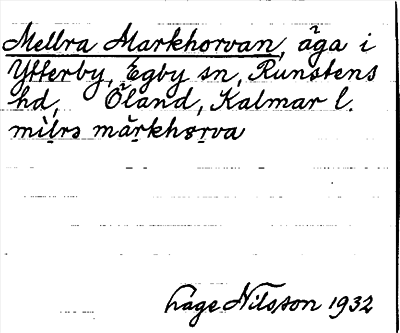 Mellra Markhorvan, äga i
Ytterby, Egby sn, Runstens
hd, Öland, Kalmar l.
mìl̥rs màr̥khɷr̥va
Låge Nilsson 1932